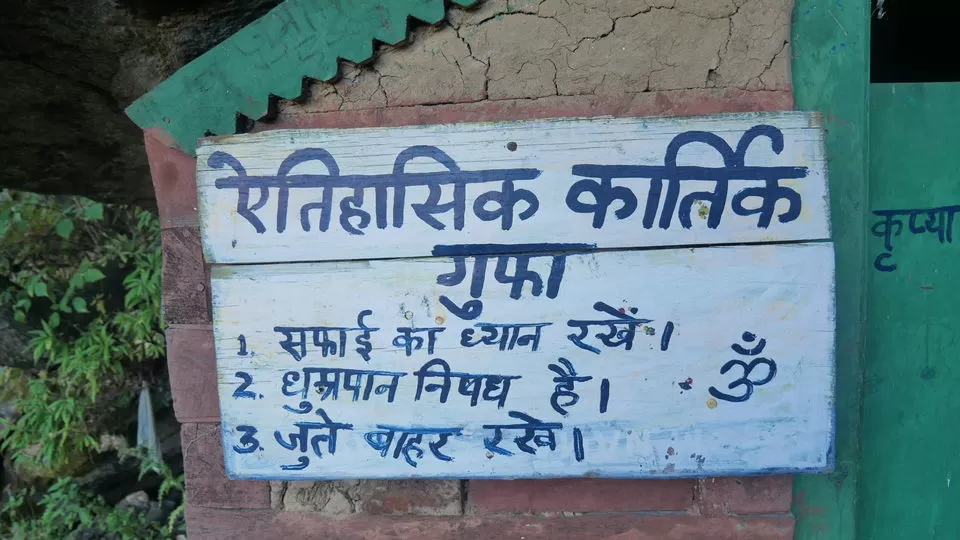 ऐतिहासिक कार्तिक
गुफा
1. सफाई का ध्यान रखें।
2. धुम्रपान निषध है।
3. जुते बाहर रखे।
ॐ
कृप्या